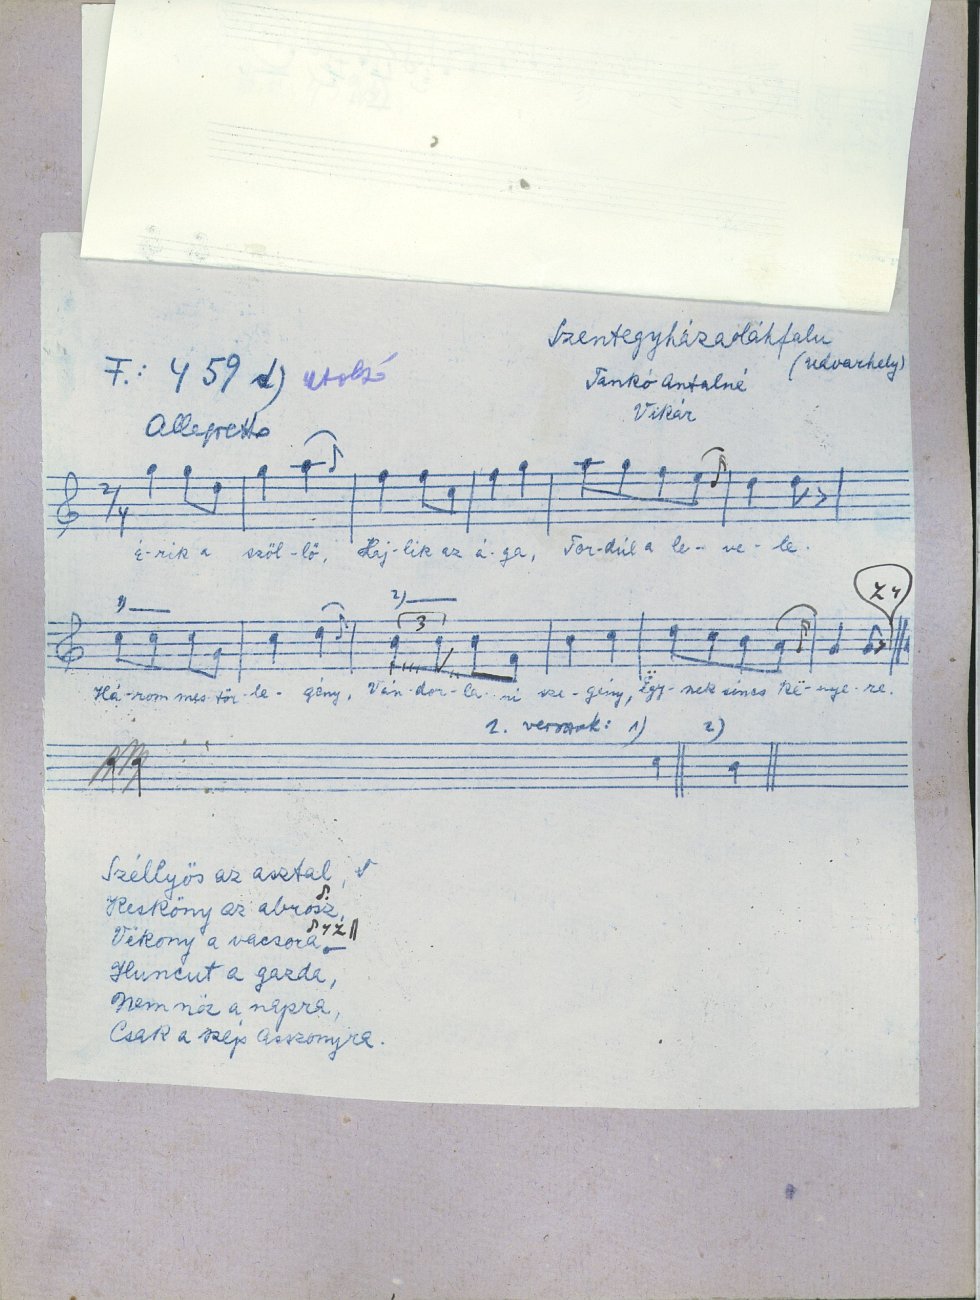 Szentegyházasoláhfalu
(Udvarhely)
F.: 459 d) utolsó
Tankó Antalné
Vikár
Allegretto
2/4
É-rik a szöl-lő, Haj-lik az á-ga, For-dúl a le-ve-le.
1) 2)
3
Há-rom mes-tör-le-gény, Ván-dor-le-ni sze-gény, Egy-nek sincs kë-nye-re.
2. versszak: 1) 2)
Széllyös az asztal,
Kesköny az abrosz,
Vékony a vacsora
Huncut a gazda,
Nem néz a napra,
Csak a szép asszonyra.